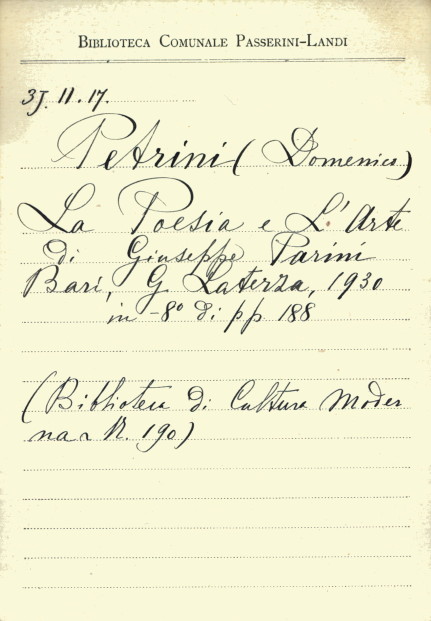 BIBLIOTECA COMUNALE PASSERINI-LANDI
3J. 11. 17.
Petrini (Domenico)
La Poesia e L'Arte
di Giuseppe Parini
Bari, G. Laterza, 1930
in -8° di pp 188
(Biblioteca di Cultura Moder
na N. 190)